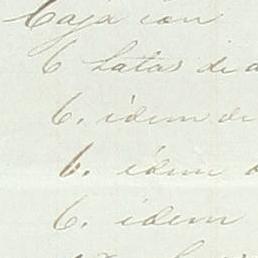 Caja con
6 latas de a
6. idem de
6. idem d
6. idem